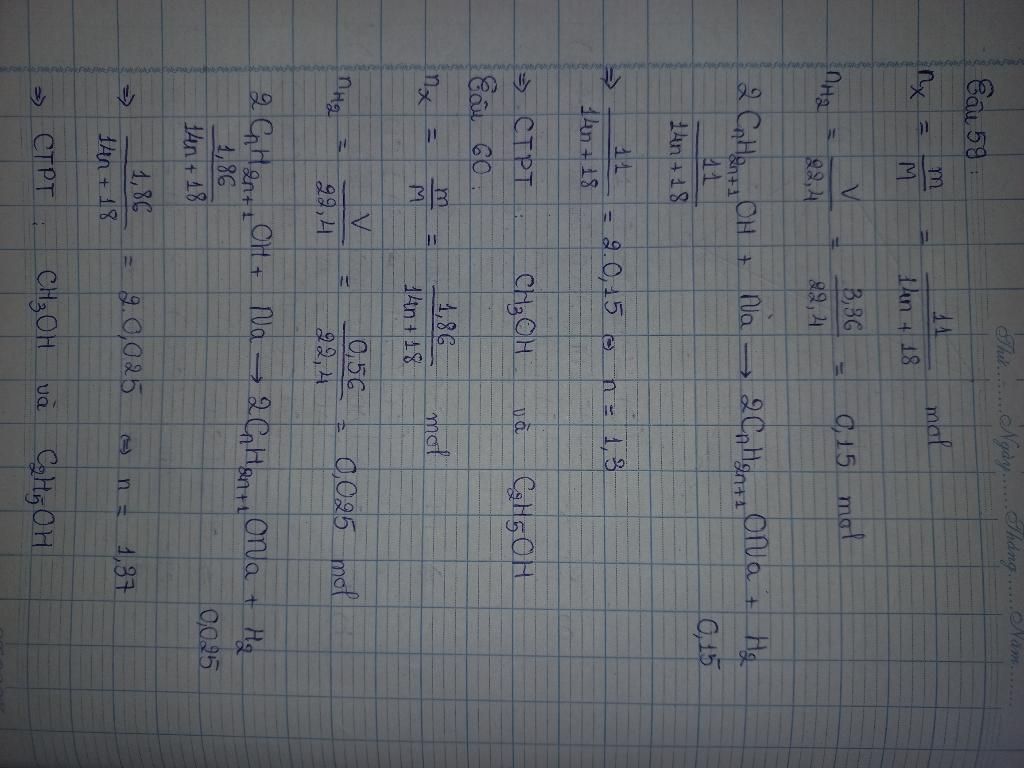 Thứ......Ngày......Tháng......Năm......
Câu 59 :
nX = m/M = 11/(14n + 18) mol
nH2 = V/22,4 = 3,36/22,4 = 0,15 mol
2CnH2n+1OH + Na → 2CnH2n+1ONa + H2
11/(14n + 18) 0,15
⇒ 11/(14n + 18) = 2.0,15 ⇔ n = 1,3
⇒ CTPT : CH3OH và C2H5OH
Câu 60 :
nX = m/M = 1,86/(14n + 18) mol
nH2 = V/22,4 = 0,56/22,4 = 0,025 mol
2CnH2n+1OH + Na → 2CnH2n+1ONa + H2
1,86/(14n + 18) 0,025
⇒ 1,86/(14n + 18) = 2.0,025 ⇔ n = 1,37
⇒ CTPT : CH3OH và C2H5OH